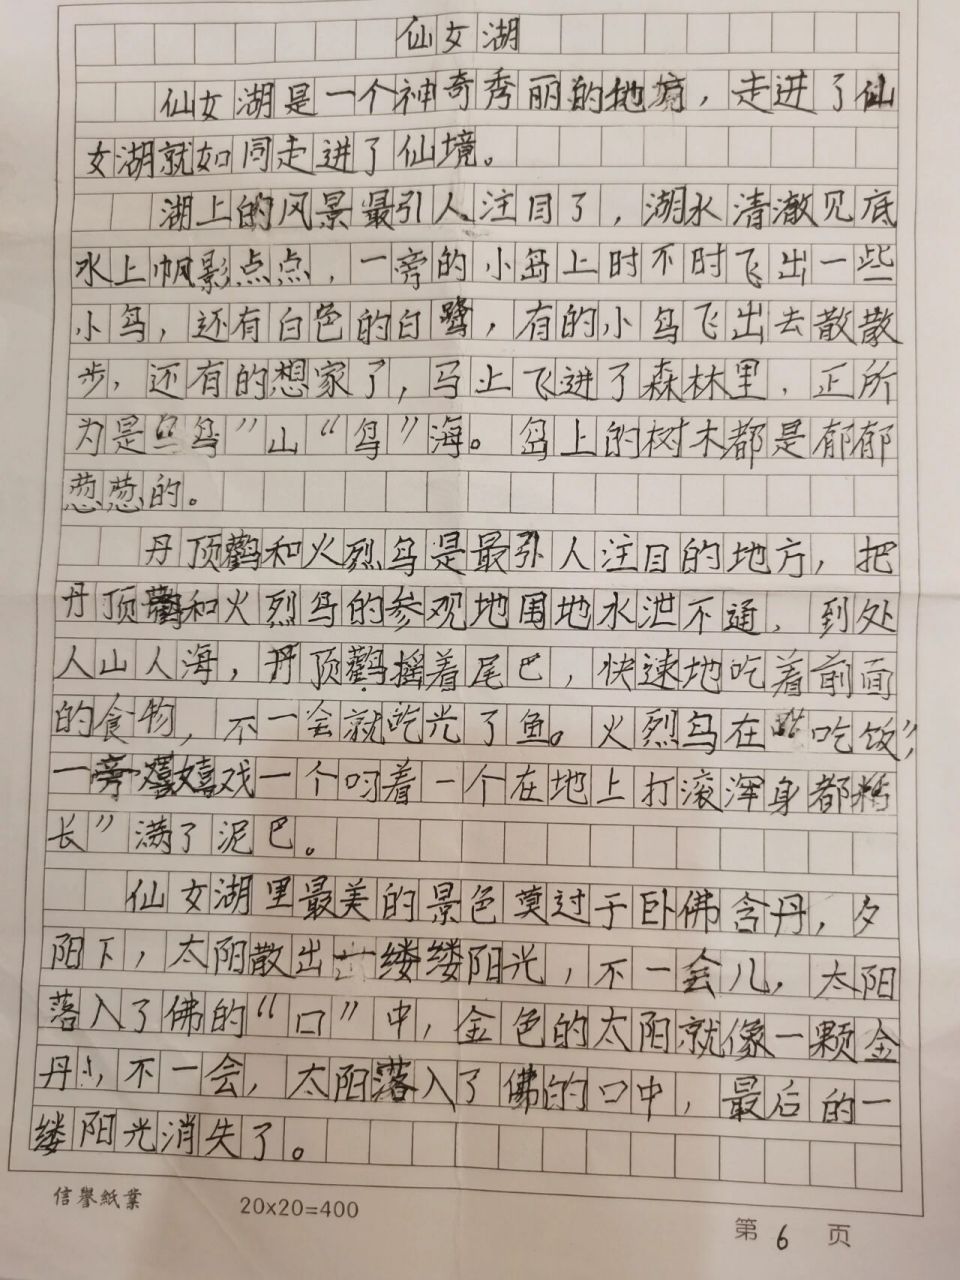 仙女湖
仙女湖是一个神奇秀丽的地方，走进了仙
女湖就如同走进了仙境。
湖上的风景最引人注目了，湖水清澈见底
水上帆影点点，一旁的小岛上时不时飞出一些
小鸟，还有白色的白鹭，有的小鸟飞出去散散
步，还有的想家了，马上飞进了森林里，正所
为是鸟”山“鸟”海。岛上的树木都是郁郁
葱葱的。
丹顶鹤和火烈鸟是最引人注目的地方，把
丹顶鹤和火烈鸟的参观地围地水泄不通，到处
人山人海，丹顶鹤摇着尾巴，快速地吃着前面
的食物，不一会就吃光了鱼。火烈鸟在吃饭”，
一旁嬉戏一个叼着一个在地上打滚浑身都
长”满了泥巴。
仙女湖里最美的景色莫过于卧佛含丹，夕
阳下，太阳散出一缕缕阳光，不一会儿，太阳
落入了佛的“口”中，金色的太阳就像一颗金
丹，不一会，太阳落入了佛的口中，最后的一
缕阳光消失了。
信誉紙業 20x20=400
第 6 页